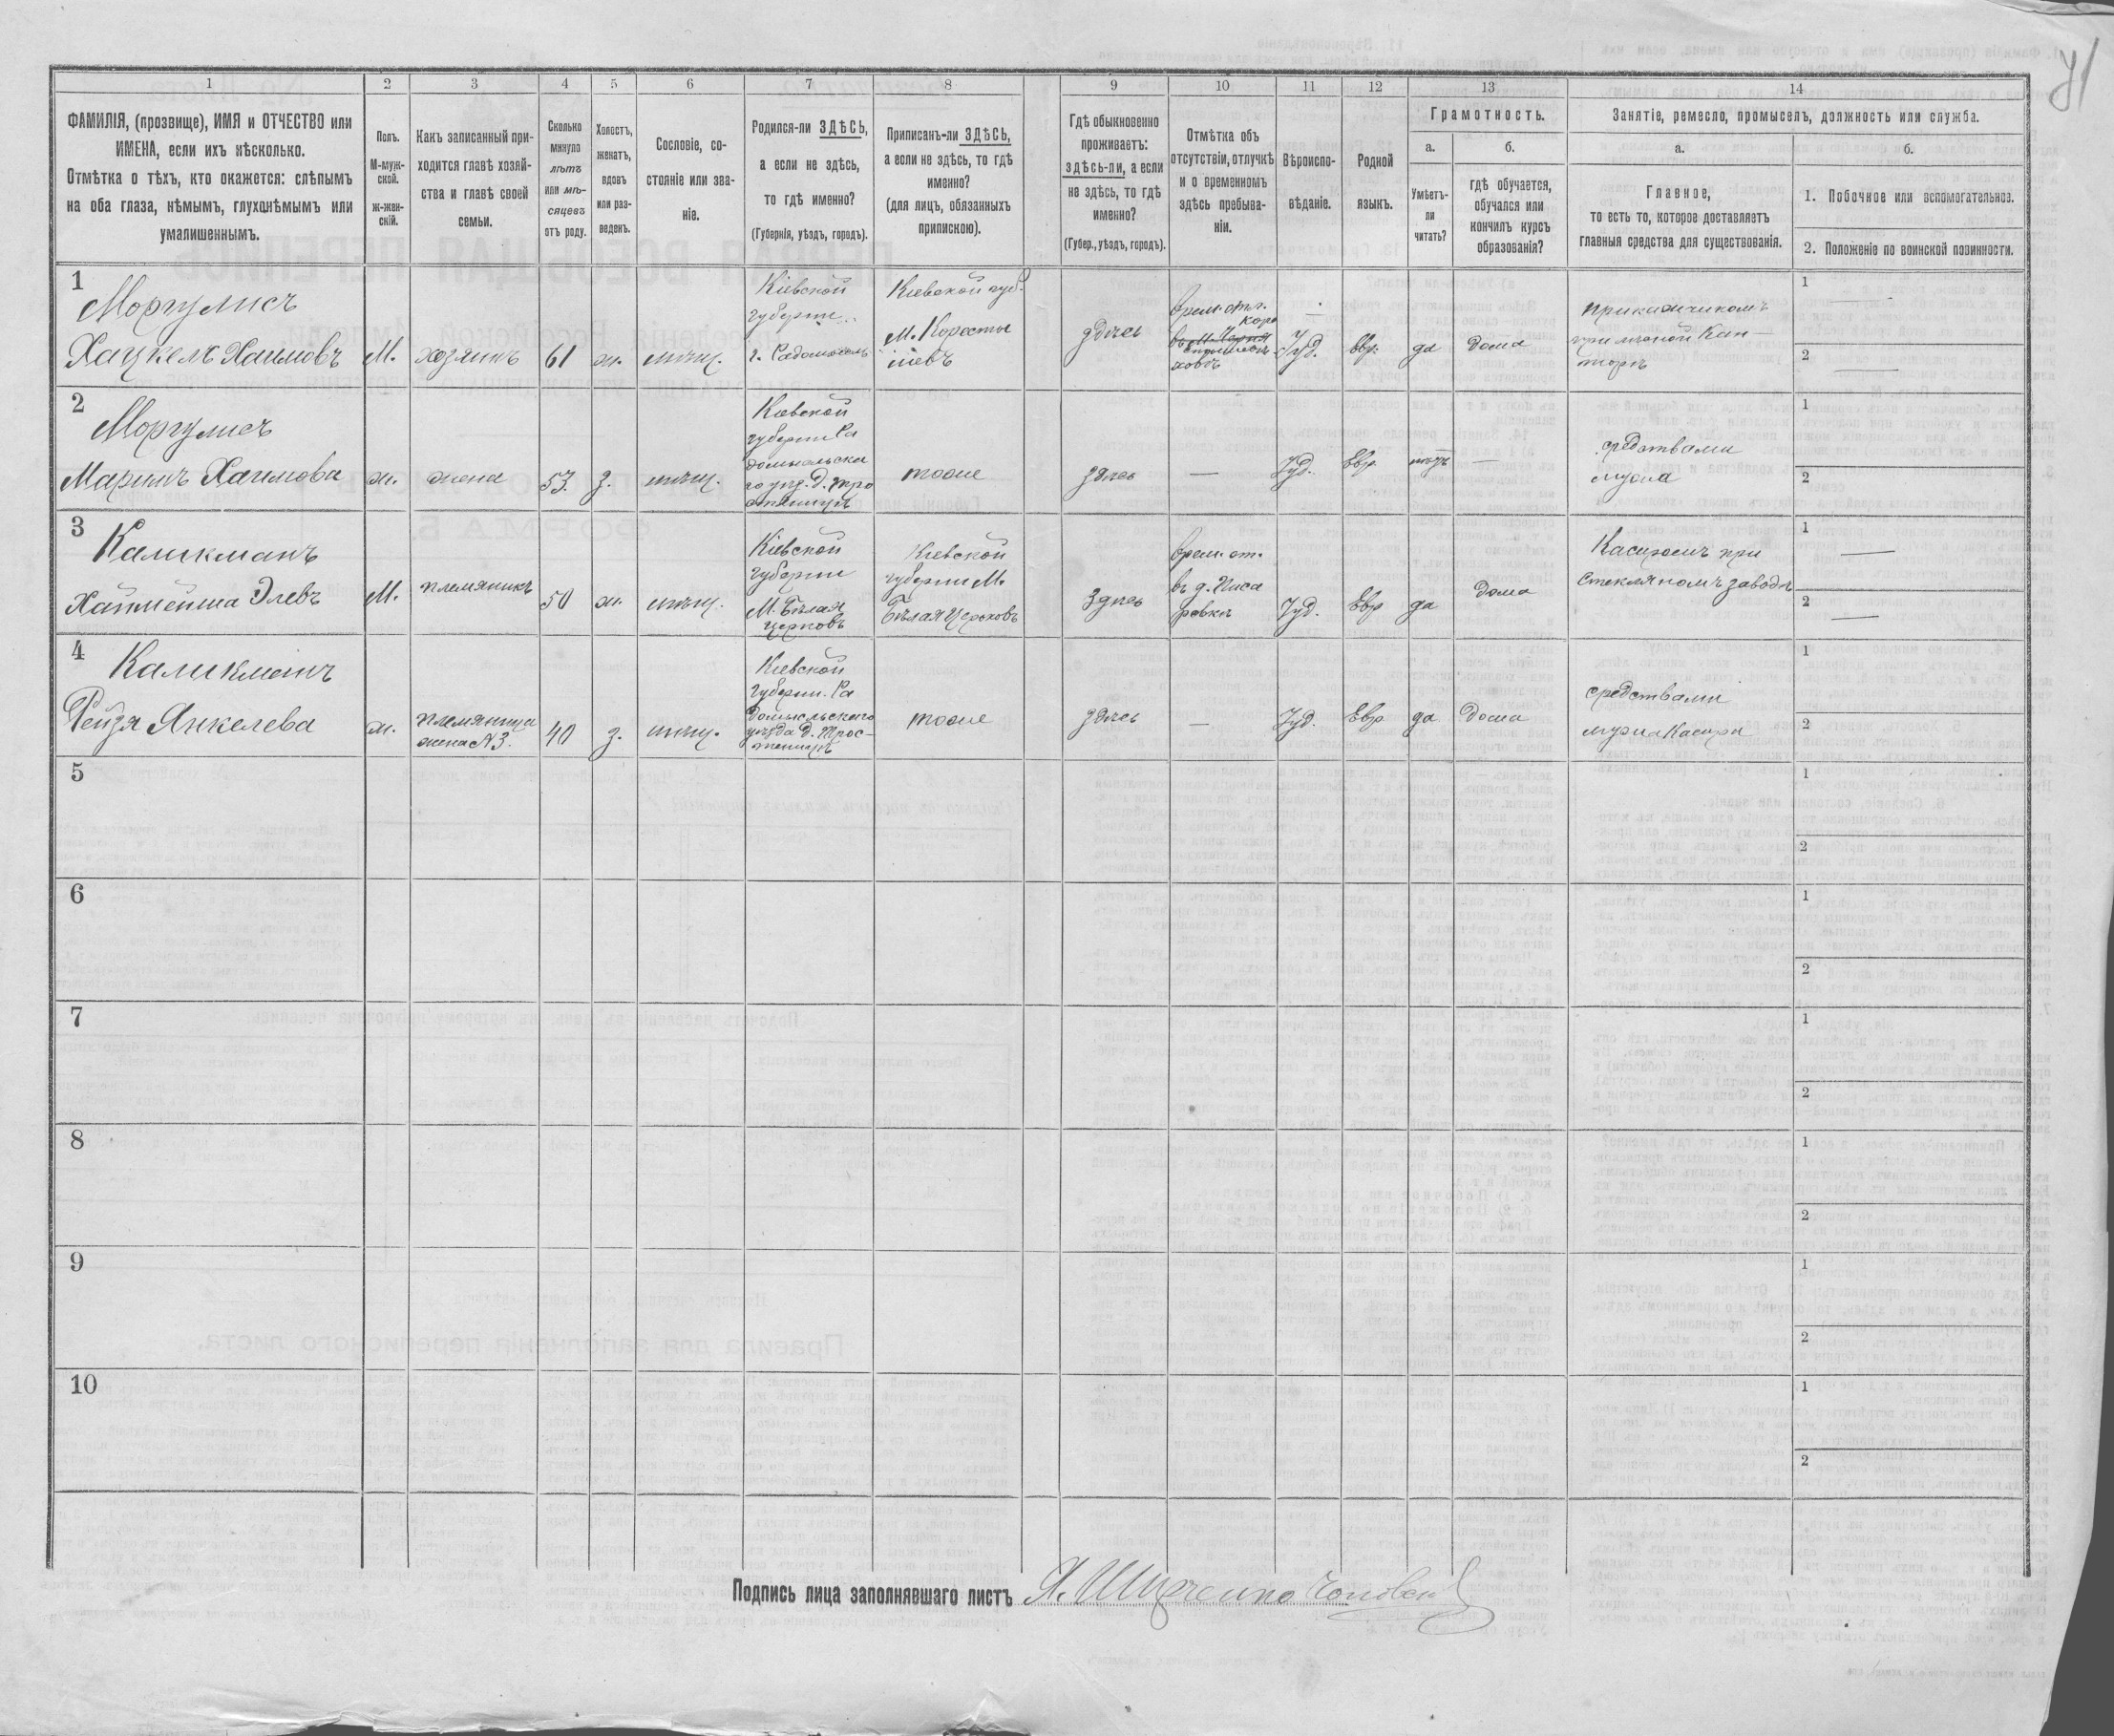 71
1
2
3
4
5
6
7
8
9
10
11
12
13
14
ФАМИЛІЯ, (прозвище), ИМЯ и ОТЧЕСТВО или
ИМЕНА, если ихъ нѣсколько.
Отмѣтка о тѣхъ, кто окажется: слѣпымъ
на оба глаза, нѣмымъ, глухонѣмымъ или
умалишеннымъ.
Полъ.
М-муж-
ской.
ж-жен-
скій.
Какъ записанный при-
ходится главѣ хозяй-
ства и главѣ своей
семьи.
Сколько
минуло
лѣтъ
или мѣ-
сяцевъ
отъ роду.
Холостъ,
женатъ,
вдовъ
или раз-
веденъ.
Сословіе, со-
стояніе или зва-
ніе.
Родился-ли ЗДѢСЬ,
а если не здѣсь,
то гдѣ именно?
(Губернія, уѣздъ, городъ).
Приписанъ-ли ЗДѢСЬ,
а если не здѣсь, то гдѣ
именно?
(для лицъ, обязанныхъ
припискою).
Гдѣ обыкновенно
проживаетъ:
здѣсь-ли, а если
не здѣсь, то гдѣ
именно?
(Губер., уѣздъ, городъ).
Отмѣтка объ
отсутствіи, отлучкѣ
и о временномъ
здѣсь пребыва-
ніи.
Вѣроиспо-
вѣданіе.
Родной
языкъ.
Грамотность.
а.
Умѣетъ-
ли
читать?
б.
гдѣ обучается,
обучался или
кончилъ курсъ
образованія?
Занятіе, ремесло, промыселъ, должность или служба.
а.
Главное,
то есть то, которое доставляетъ
главныя средства для существованія.
б.
1. Побочное или вспомогательное.
2. Положеніе по воинской повинности.
1
Моргулисъ
Хацкель Хаимовъ
М.
хозяинъ
61
ж.
мѣщ.
Кіевской
губерніи
г. Радомысль
Кіевской губ.
М. Коросты
шевъ
здѣсь
врем. от.
Іуд.
Евр.
да
дома
прикащикомъ
при лѣсной Кан—
торѣ
1 —
2 —
2
Моргулисъ
Маріимъ Хаимова
ж.
жена
53.
з.
мѣщ.
Кіевской
губерніи Ра
домысльска
го уѣз. д. тро
стяницѣ
тоже
здѣсь
—
Іуд.
Евр.
нѣтъ
—
средствами
мужа
1
2
3
Каликманъ
Хаймейша Элевъ
М.
племяникъ
50
ж.
мѣщ.
Кіевской
губерніи
М. Бѣлая
Церковь
Кіевской
губерніи М.
Бѣлая Церковь
Здѣсь
врем. от.
въ д. Писа
ревкѣ
Іуд.
Евр
да
дома
Касиромъ при
Стекляномъ заводѣ
1 —
2 —
4
Каликманъ
Рейзя Янкелева
ж.
племяница
жена N 3.
40
з.
мѣщ.
Кіевской
губерніи. Ра
домысльскаго
уѣзда д. Трос—
тяницѣ
тоже
здѣсь
—
Іуд.
Евр
да
дома
средствами
мужа Касира
1
2
5
1
2
6
1
2
7
1
2
8
1
2
9
1
2
10
1
2
Подпись лица заполнявшаго листъ